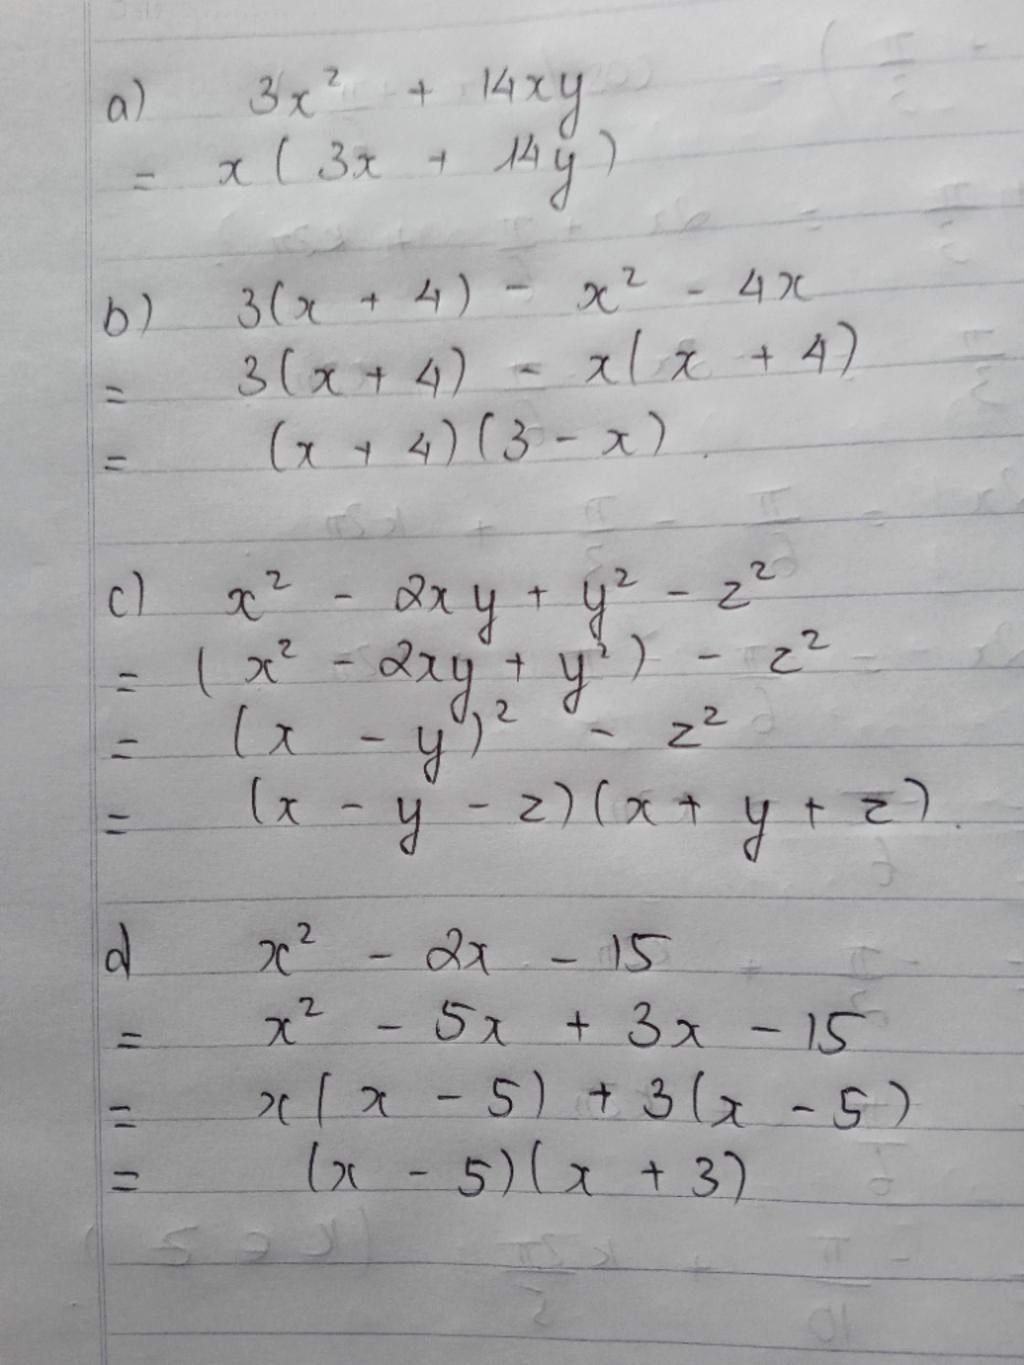 a) 3x² + 14xy
= x(3x + 14y)
b) 3(x + 4) - x² - 4x
= 3(x + 4) - x(x + 4)
= (x + 4)(3 - x).
c) x² - 2xy + y² - z²
= (x² - 2xy + y²) - z²
= (x - y)² - z²
= (x - y - z)(x + y + z).
d x² - 2x - 15
= x² - 5x + 3x - 15
= x(x - 5) + 3(x - 5)
= (x - 5)(x + 3)